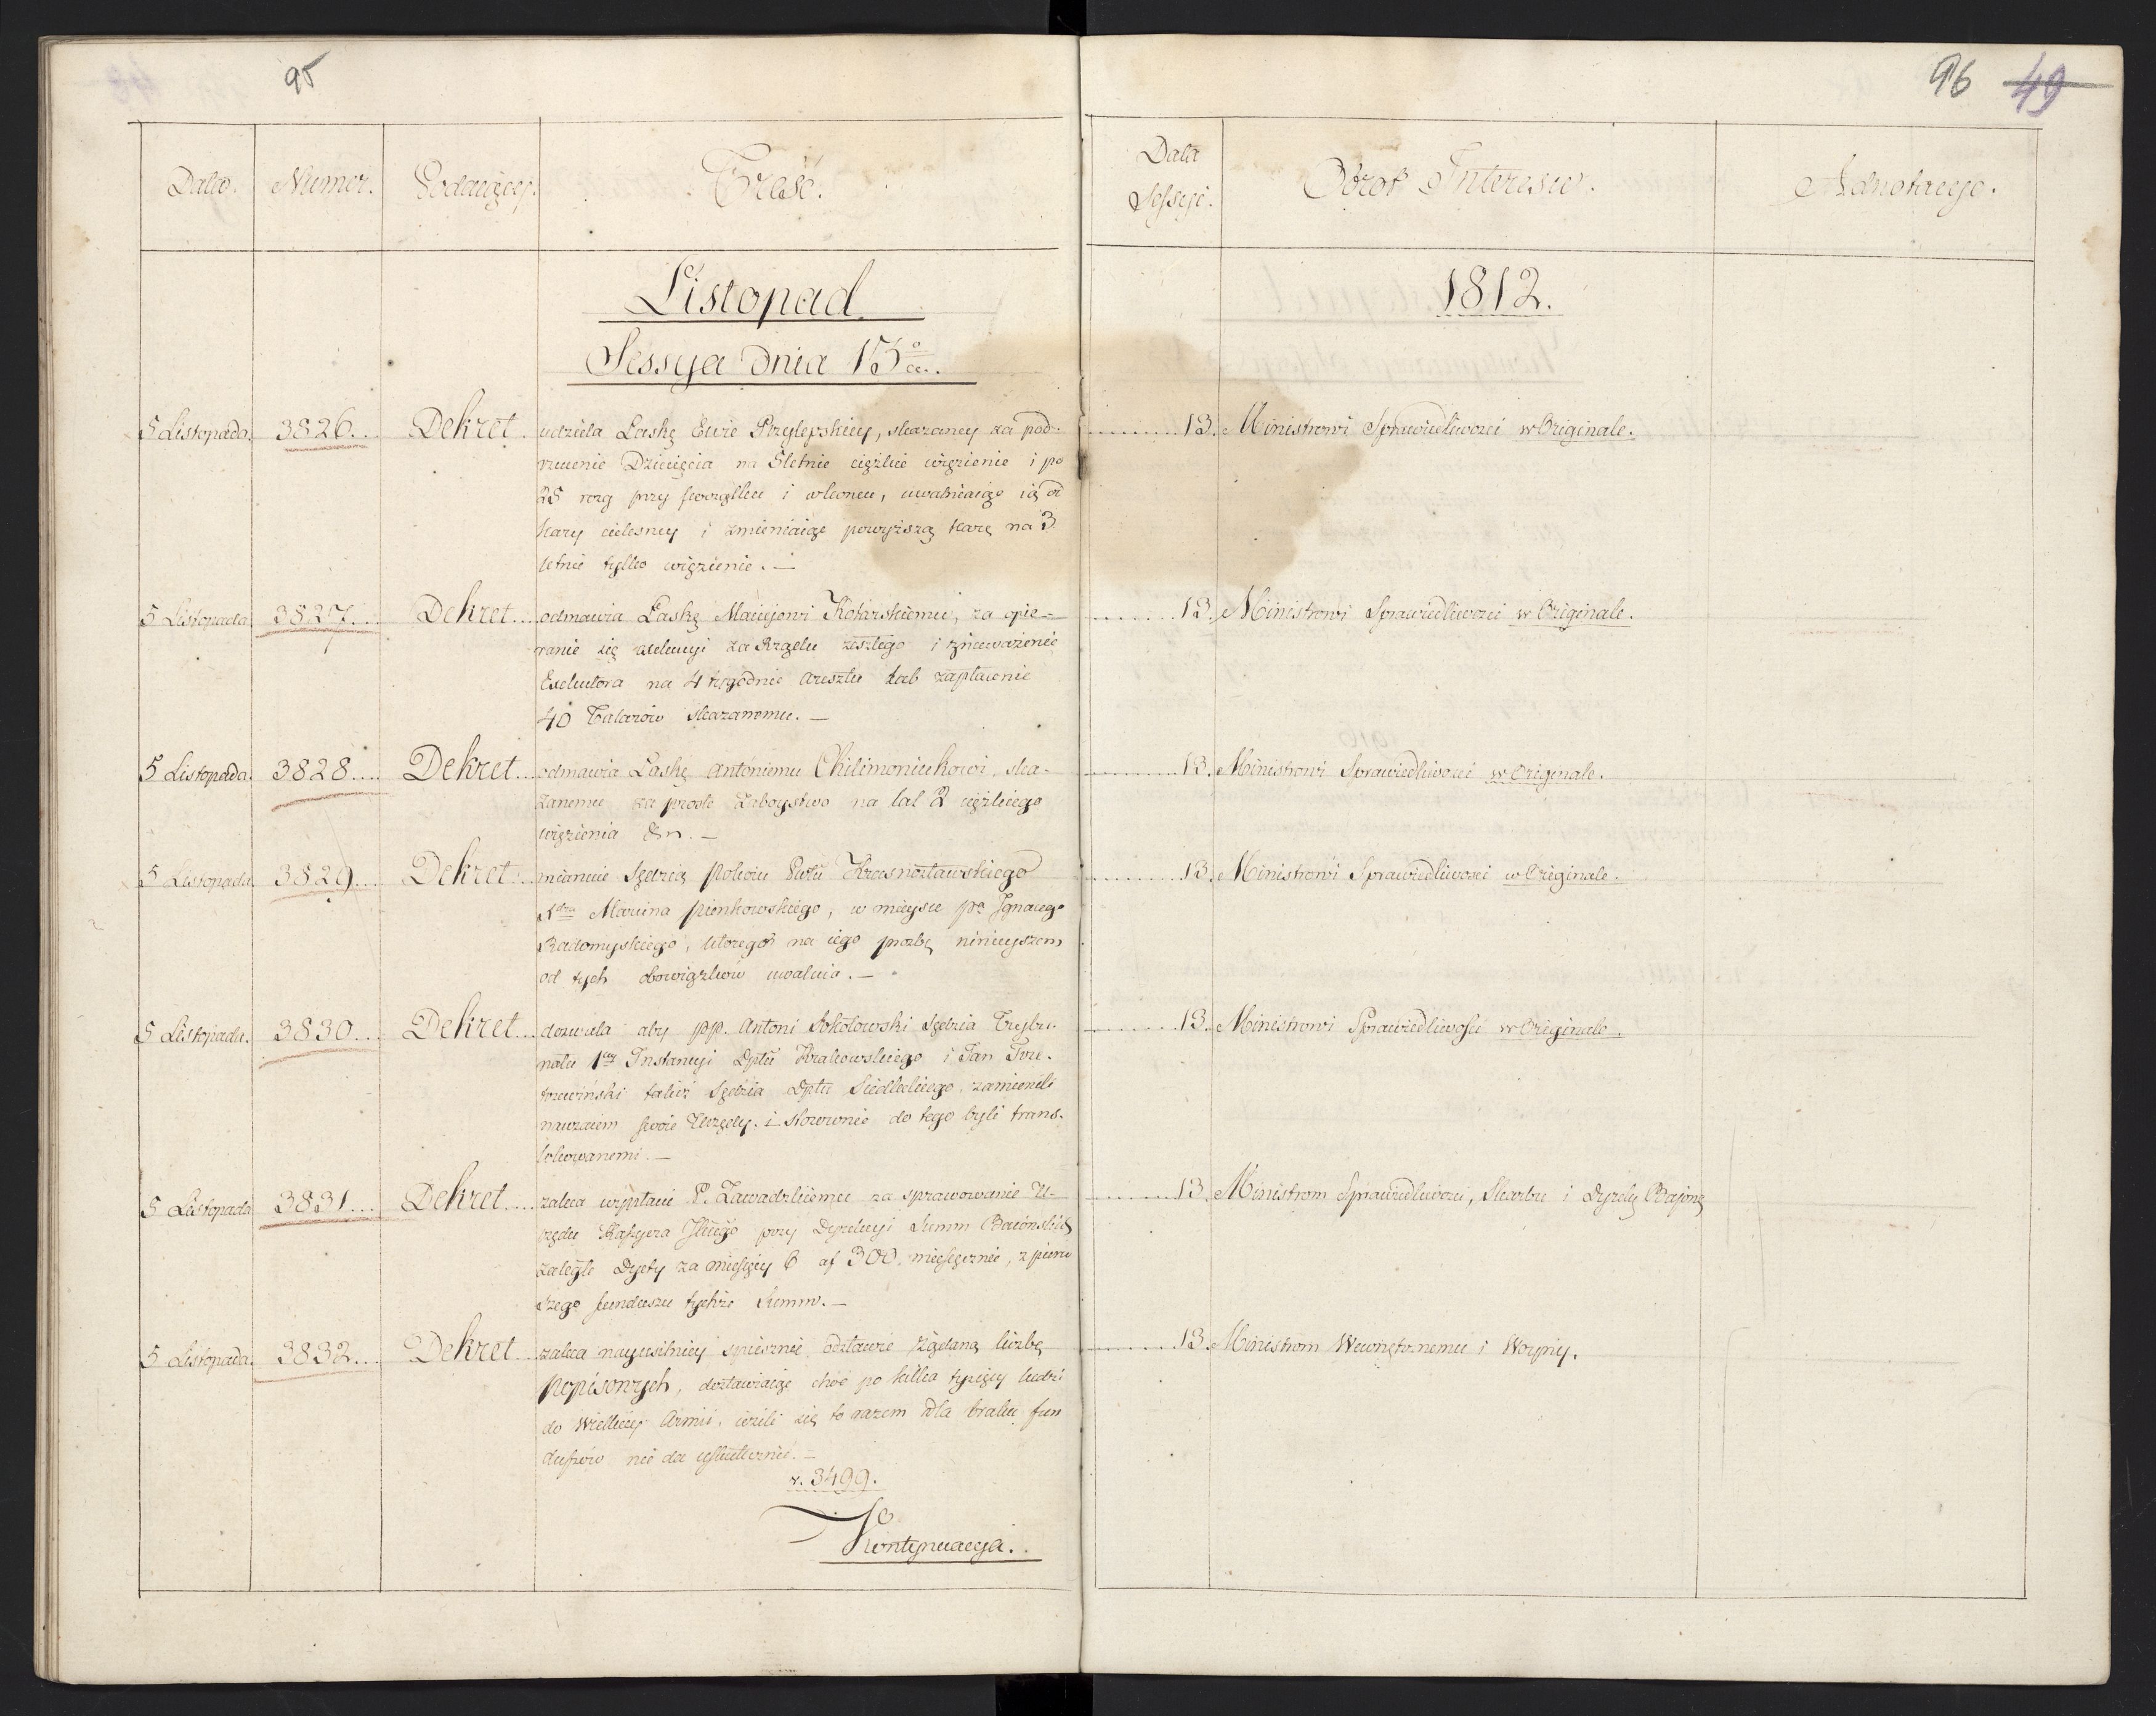 95
Data. Numer. Podaiący. Treść.
Listopad
Sessya dnia 13º
5 Listopada. 3826... Dekret udziela Łaskę Ewie Przylepskiey, skazaney za pod-
rzucenie Dziecięcia na 5letnie ciężkie więzienie i po
25 rózg przy początku i w końcu, uwalniaiąc ią od
kary cielesney i zmieniaiąc powyższą karę na 3
letnie tylko więzienie. —
5 Listopada 3827... Dekret... odmawia Łaskę Maciejowi Kotarskiemu, za opie-
ranie się exekucyi za Rządu zeszłego i znieważenie
Exekutora na 4 tygodnie aresztu lub zapłacenie
40 Talarów skazanemu. —
5 Listopada. 3828.... Dekret... odmawia Łaskę Antoniemu Chilimoniukowi ska-
zanemu za proste Zaboystwo na lat 2 ciężkiego
więzienia &n. —
5 Listopada. 3829... Dekret... mianuie Sędzią Pokoiu Pwtu Krasnostawskiego
Marcina Pienkowskiego, w mieysce pa Ignacego
Radomyskiego, ktorego na iego prozbę ninieyszem
od tych obowiązków uwalnia. —
5 Listopada. 3830... Dekret... dozwala aby pp. Antoni Sokołowski Sędzia Trybu-
nału 1ey Instancyi Dptu Krakowskiego i Jan
takiż Sędzia Dptu Siedleckiego zamienili
nawzaiem swoie Urzędy. i stosownie do tego byli trans-
lokowanemi. —
5 Listopada 3831... Dekret.... zaleca wypłacić P. Zawadzkiemu za sprawowanie U-
rzędu Kassyera przy Dyrekcyi Summ Baiońskich
zaległe Dyety za miesięcy 6 af 300. miesięcznie, z pierw
szego funduszu tychże Summ. —
5 Listopada. 3832... Dekret... zaleca nayusilniey spiesznie odstawić żądaną liczbę
popisowych, dostawiaiąc choć po kilka tysięcy ludzi
do Wielkiey Armii, ieżeli się to razem dla braku fun
duszów nie da uskutecznić. —
v. 3499.
Kontynuacya.
96 49
Data Sessyi. Obrot Interesu. Adnotacye.
1812.
13. Ministrowi Sprawiedliwosci w Originale.
13. Ministrowi Sprawiedliwosci w Originale.
13. Ministrowi Sprawiedliwosci w Originale.
13. Ministrowi Sprawiedliwosci w Originale.
13. Ministrowi Sprawiedliwości w Originale.
13. Ministrom Sprawiedliwosci, Skarbu i Dyrekcy Bajonς
13. Ministrom Wewnętrznemu i Woyny.